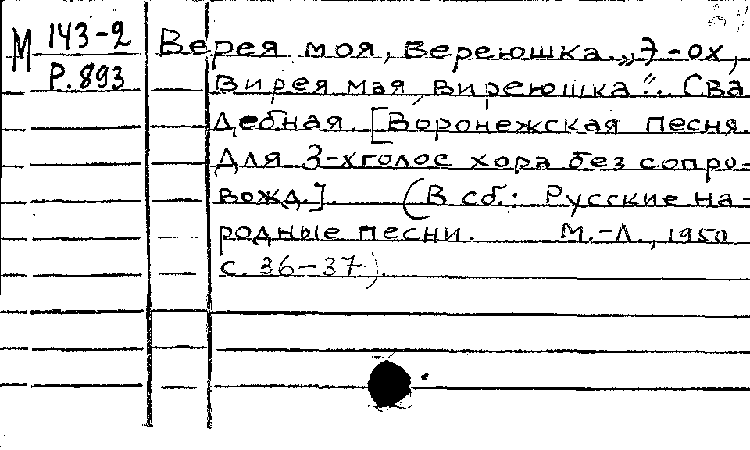 М 143-2
Р.893
Верея моя, вереюшка. „Э-ох,
вирея мая, вирeюшка". Сва
дебная. [Воронежская песня.
Для 3-хголос хора без сопро-
вожд.]. (В сб.: Русские на-
родные песни. М.-Л., 1950
с. 36-37).